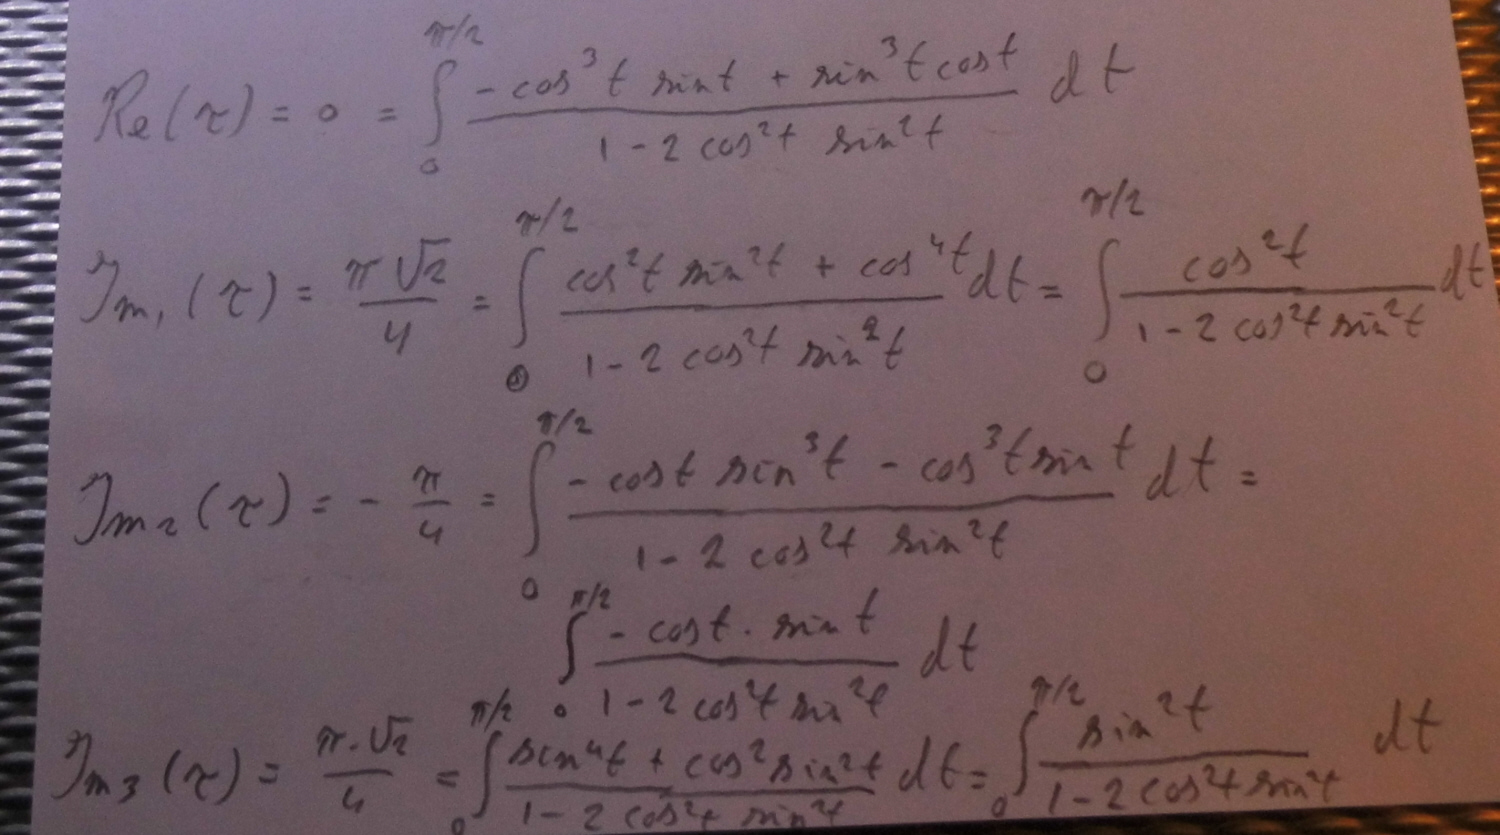 Re(τ) = 0 = ∫₀^{π/2} (-cos³t sint + sin³t cost)/(1 - 2 cos²t sin²t) dt
Im₁(τ) = π√2/4 = ∫₀^{π/2} (cos²t sin²t + cos⁴t)/(1 - 2 cos²t sin²t) dt = ∫₀^{π/2} cos²t/(1 - 2 cos²t sin²t) dt
Im₂(τ) = - π/4 = ∫₀^{π/2} (-cost sin³t - cos³t sint)/(1 - 2 cos²t sin²t) dt =
∫₀^{π/2} (-cost · sint)/(1 - 2 cos²t sin²t) dt
Im₃(τ) = π·√2/4 = ∫₀^{π/2} (sin⁴t + cos² sin²t)/(1 - 2 cos²t sin²t) dt = ∫₀^{π/2} sin²t/(1 - 2 cos²t sin²t) dt